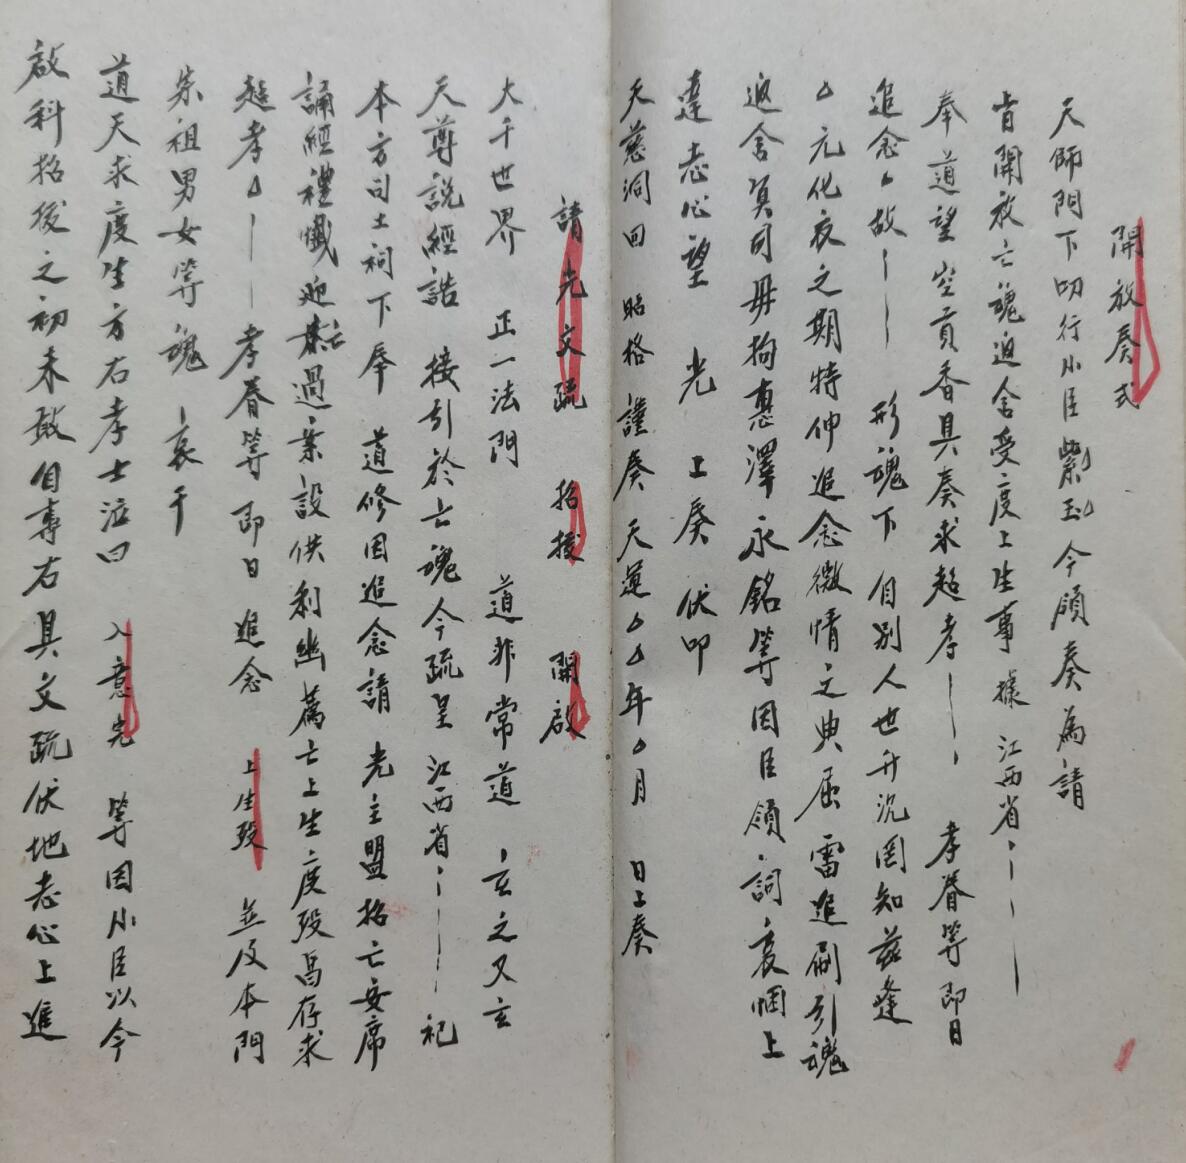 開放奏式
天師門下叨行小臣紫△玉△今頒奏為請
旨開放亡魂迴舍受度上生事據 江西省
奉道望空貢香具奏求超孝 孝眷等即日
追念△故 形魂下自別人世升沉罔知茲逢
△元化夜之期特伸追念微情之典屈雷追刷引魂
返舍冥司毋拘惠澤永銘等因臣領詞哀悃上
達志心望 光 上奏 伏叩
天慈洞回 昭格 謹奏 天運△△年△月 日上奏
請光文疏 招接 開啟
大千世界 正一法門 道非常道 玄之又玄
天尊說經誥 接引於亡魂今疏呈 江西省 祀
本方司土祠下奉 道修因追念請 光主盟招亡安席
誦經禮懺迎亡過業設供利幽薦亡上生度歿爲存求
超孝△ 孝眷等即日 追念 上生歿 並及本門
朱祖男女等魂 哀干
道天求度生方右孝士泣曰 入意完 等因小臣以今
啟科招接之初未敢自專右具文疏伏地志心上進